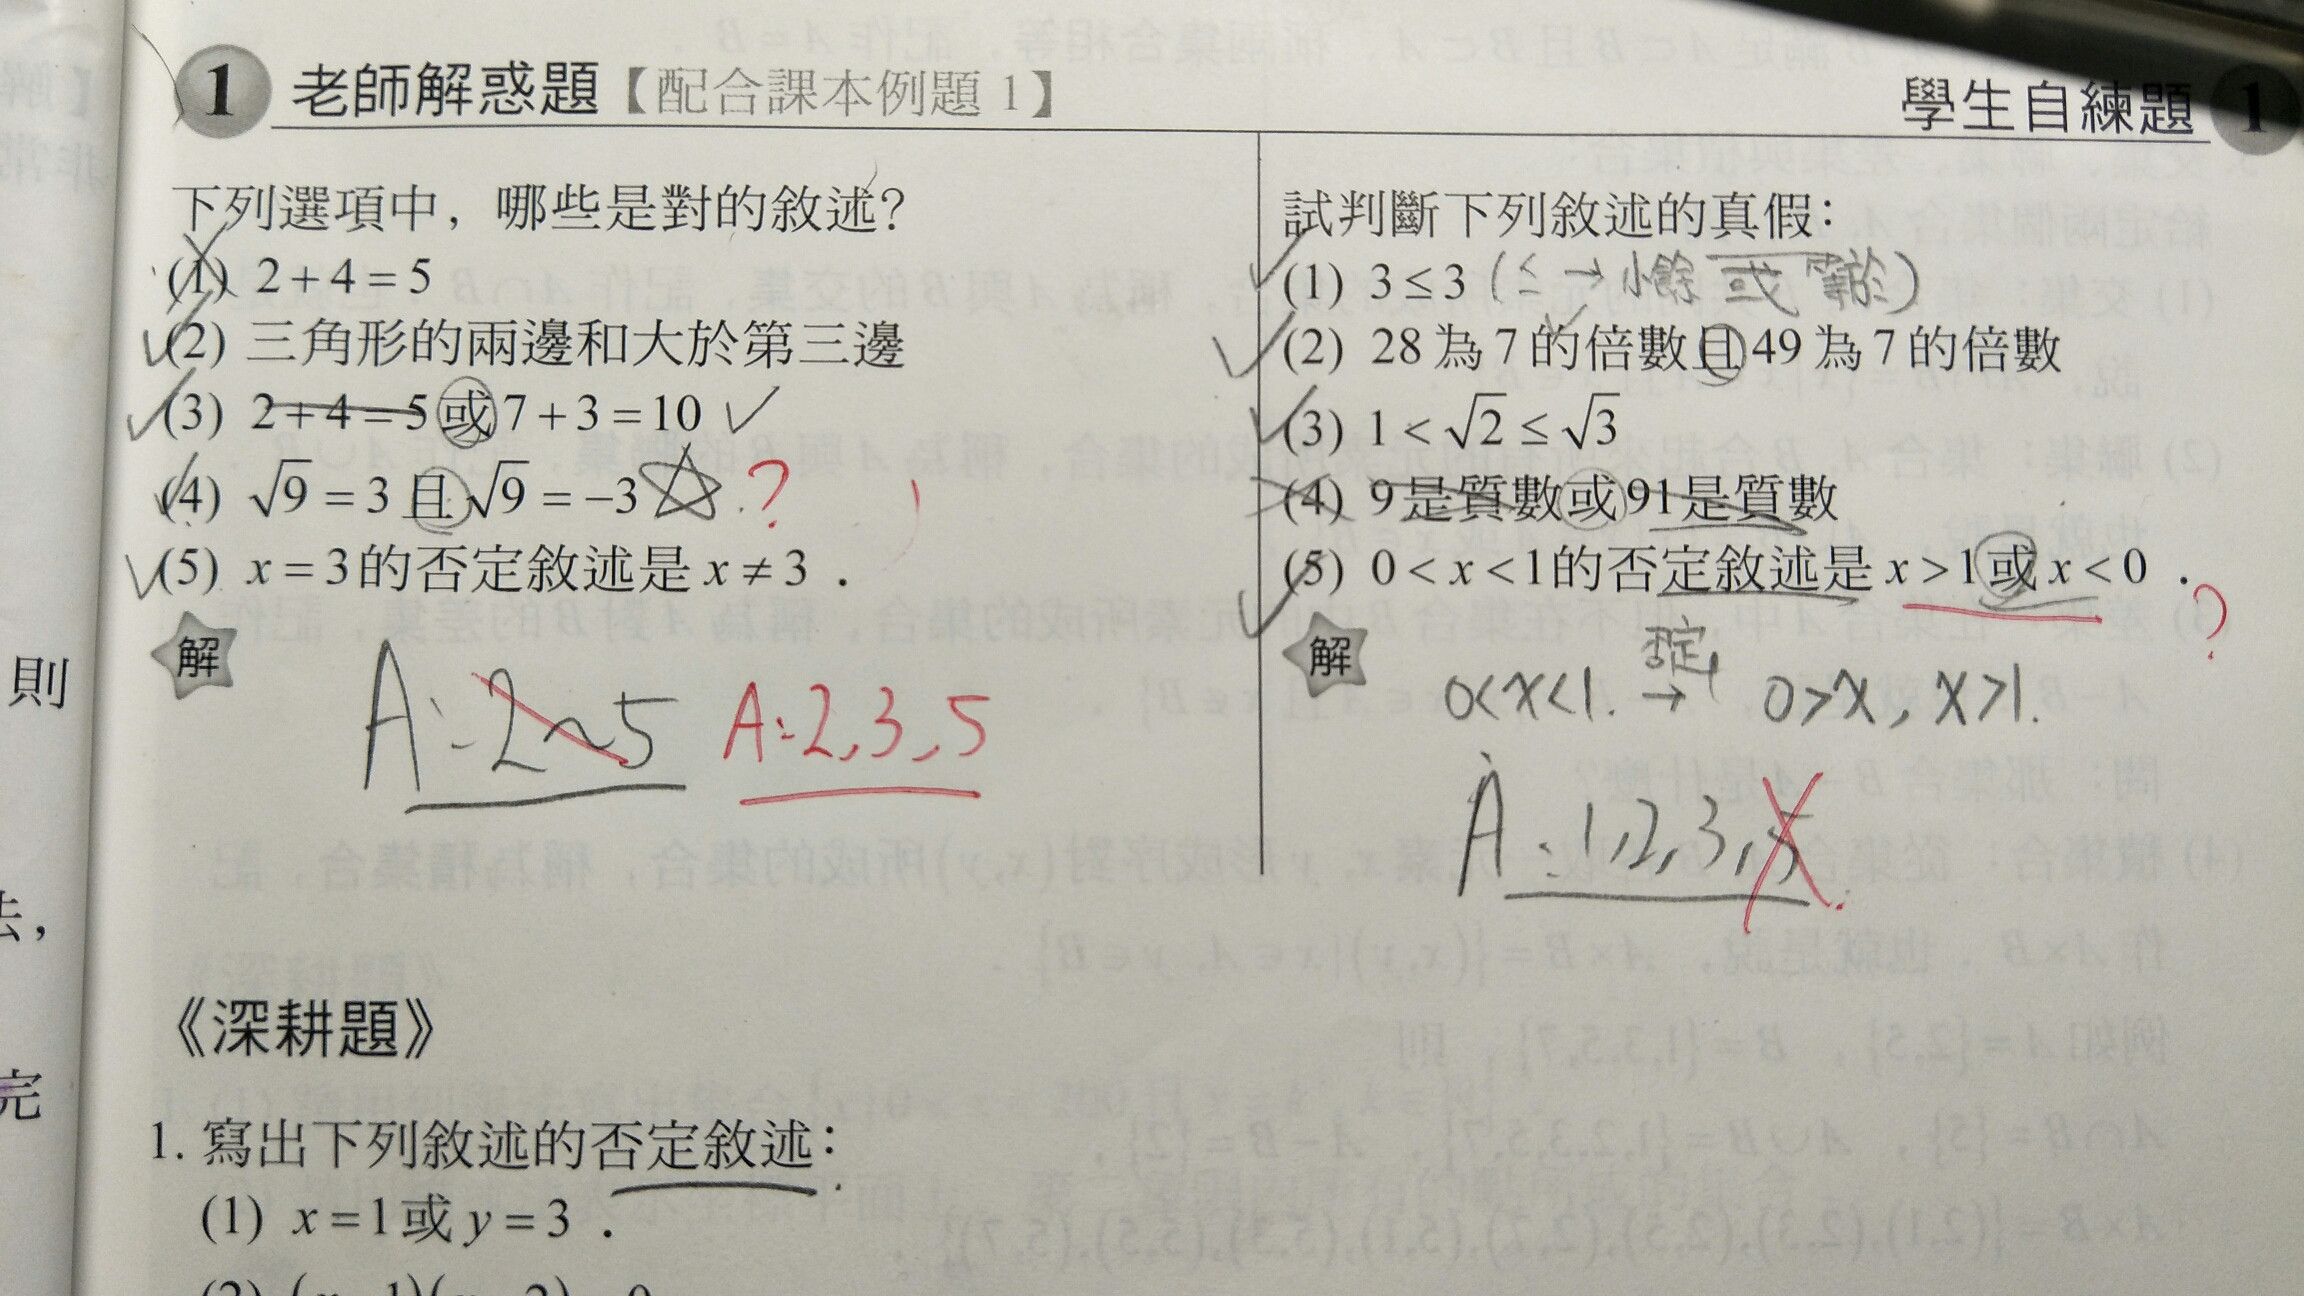 1 老師解惑題【配合課本例題 1】
下列選項中，哪些是對的敘述？
(1) 2 + 4 = 5
(2) 三角形的兩邊和大於第三邊
(3) 2 + 4 = 5 或 7 + 3 = 10
(4) √9 = 3 且 √9 = −3 ?
(5) x = 3 的否定敘述是 x ≠ 3．
解
A: 2~5 A: 2, 3, 5
學生自練題 1
試判斷下列敘述的真假：
(1) 3 ≤ 3 (≤ → 小餘 或 等於)
(2) 28 為 7 的倍數且 49 為 7 的倍數
(3) 1 < √2 ≤ √3
(4) 9 是質數或 91 是質數
(5) 0 < x < 1 的否定敘述是 x > 1 或 x < 0． ?
解
否定
0<x<1. → 0>x, x>1.
A: 1, 2, 3, 5
《深耕題》
1. 寫出下列敘述的否定敘述：
(1) x = 1 或 y = 3．
則
法，
完